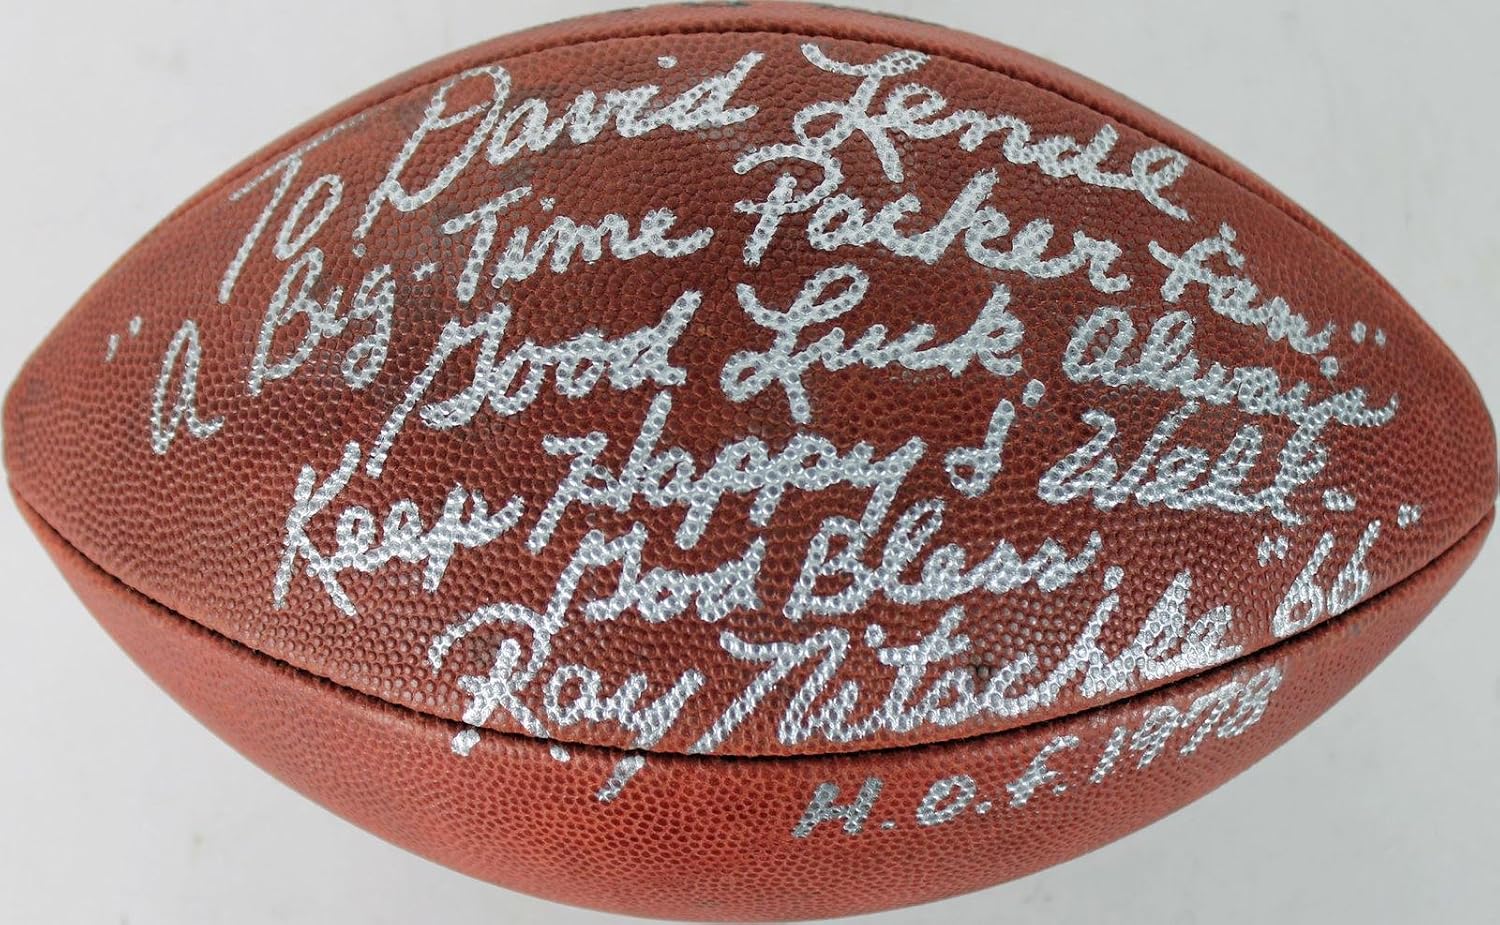 To David Lendl
"A Big-Time Packer Fan,"
Good Luck, Always
Keep Happy & Well-
God Bless
Ray Nitschke "66"
H.O.F. 1978